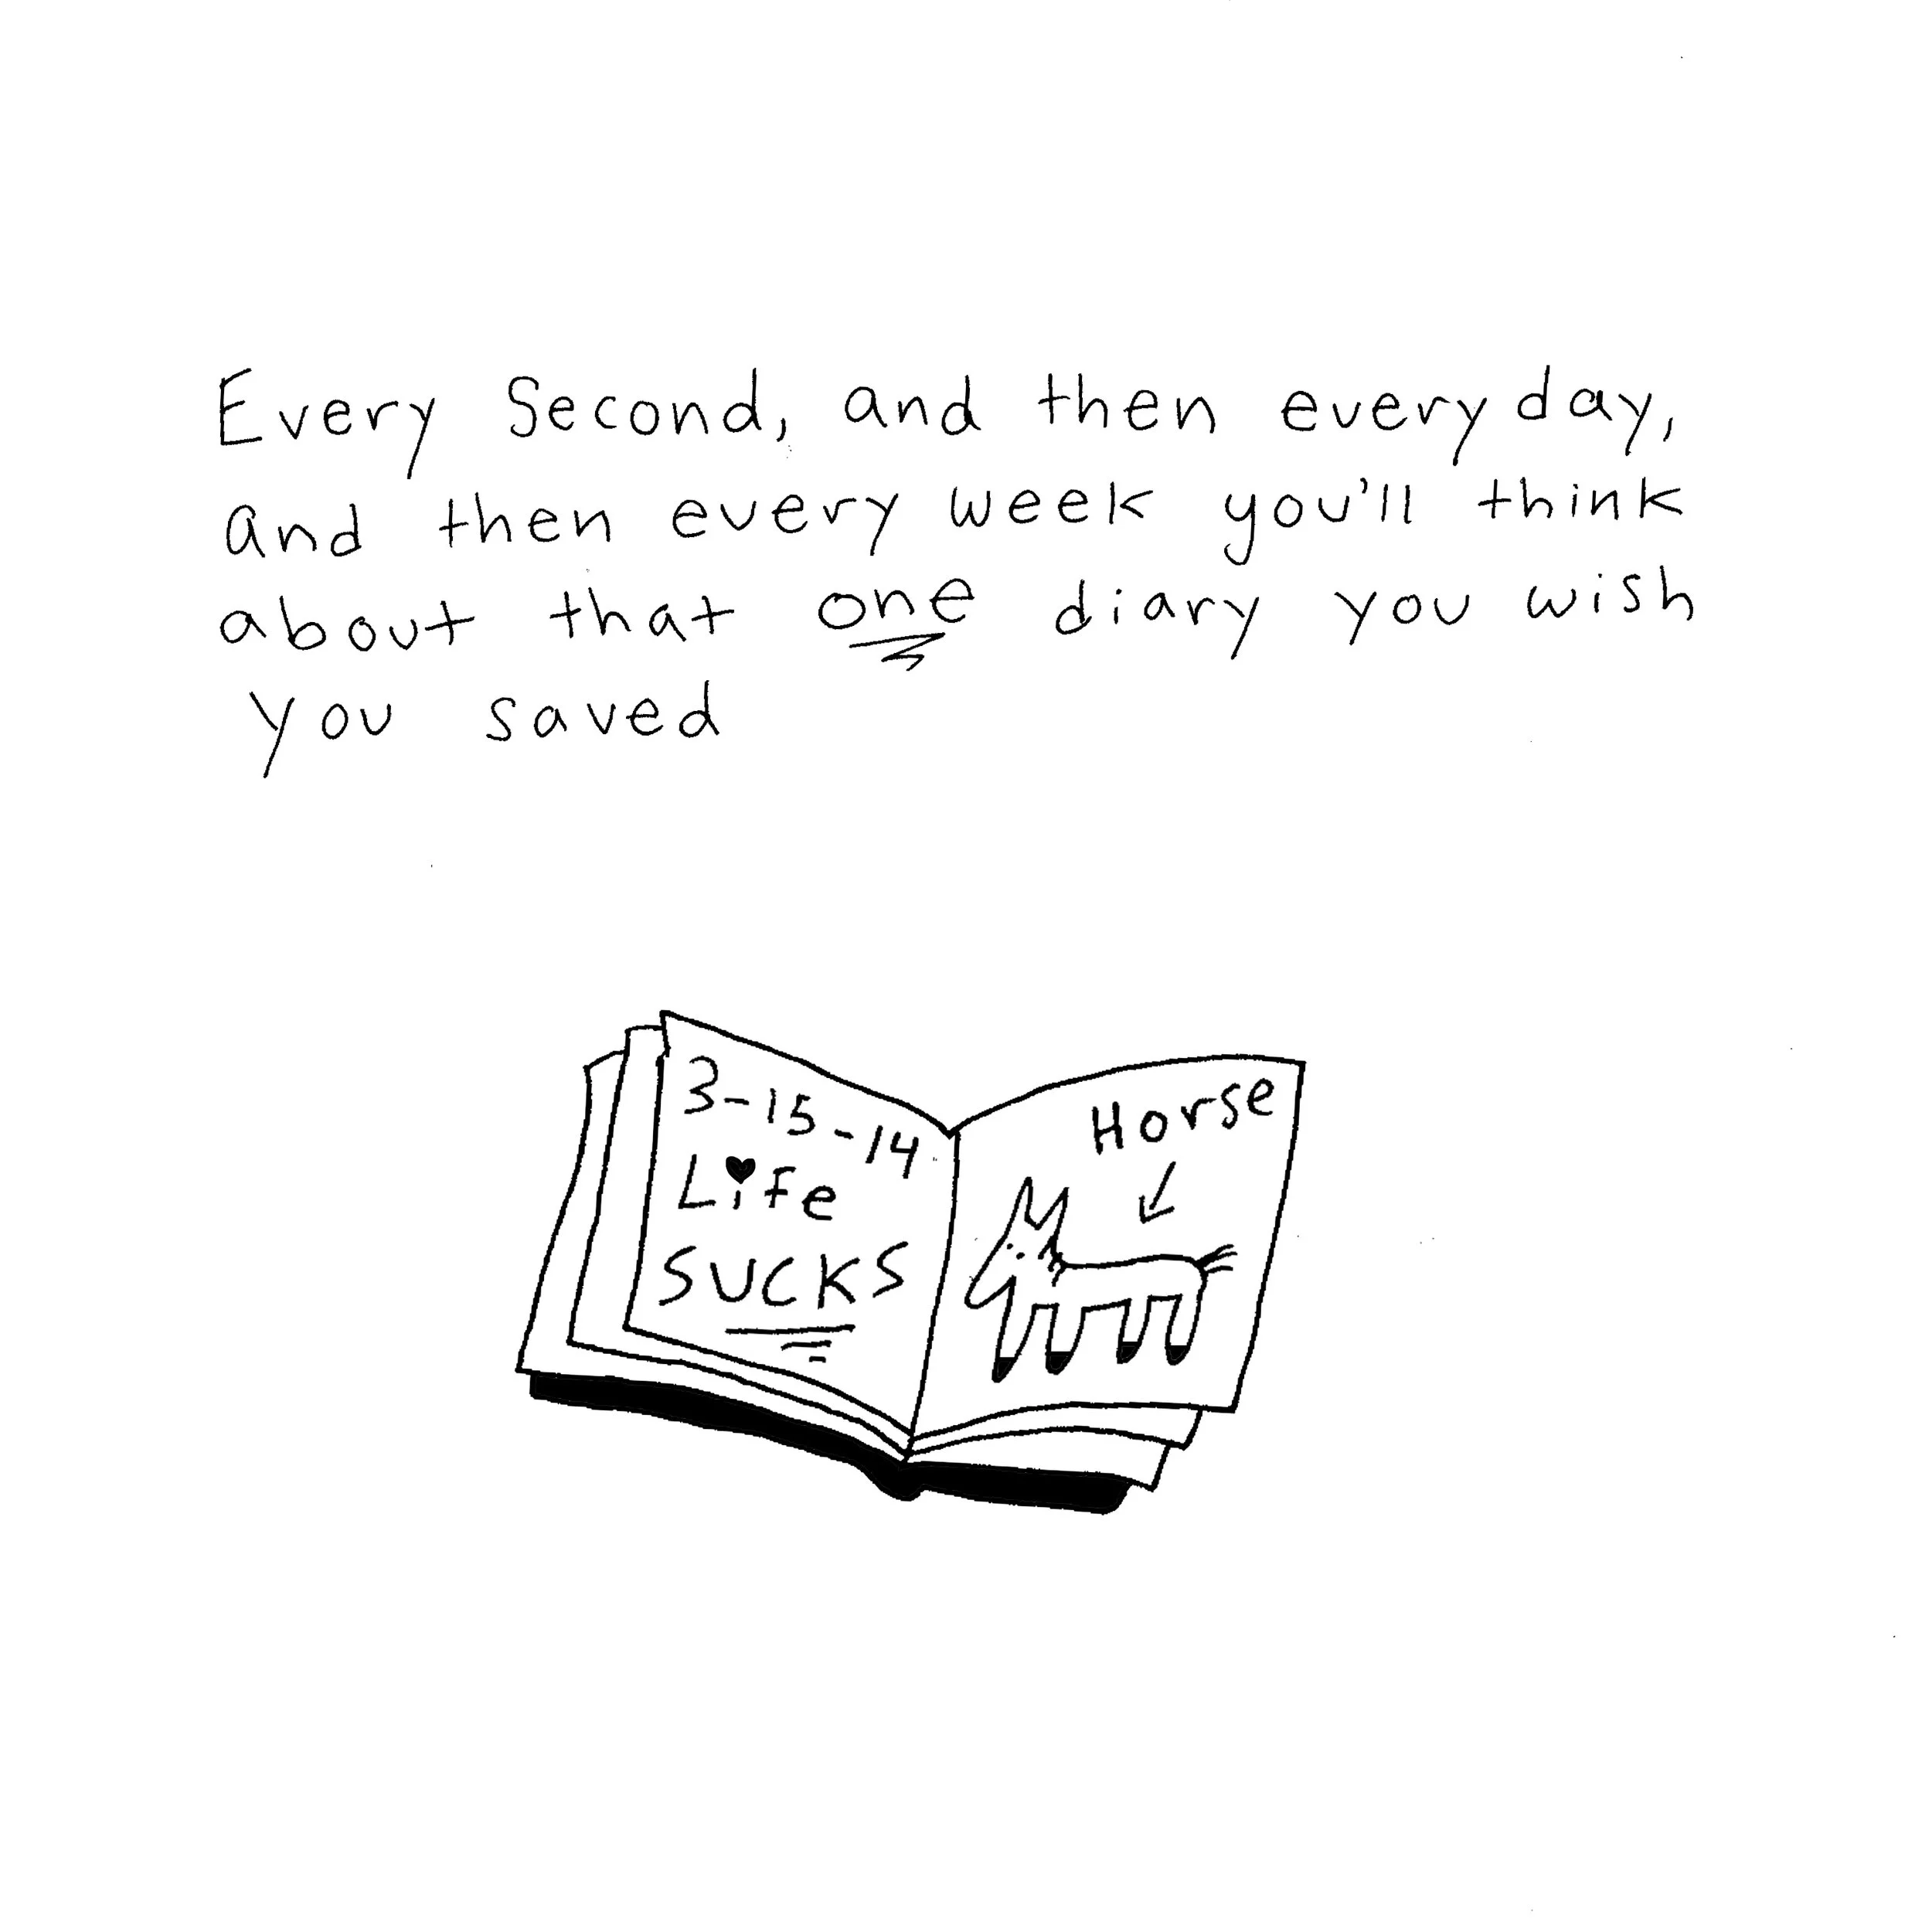 Every Second, and then every day,
and then every week you'll think
about that one diary you wish
you saved
3-15-14
Life
SUCKS
Horse